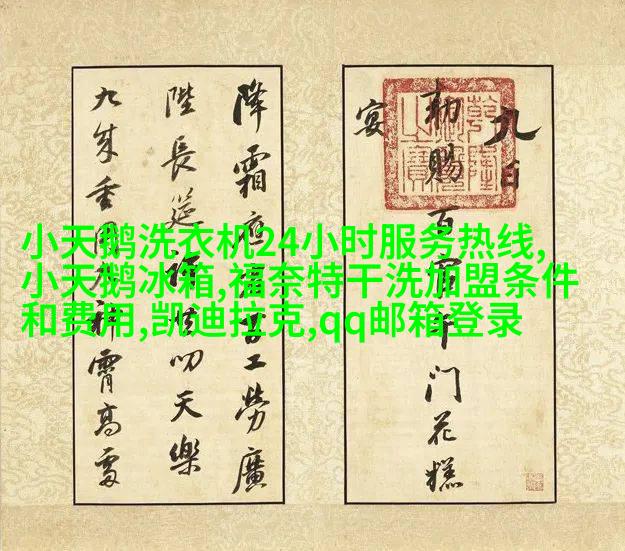 小天鹅洗衣机24小时服务热线,
小天鹅冰箱,福奈特干洗加盟条件
和费用,凯迪拉克,qq邮箱登录
九日
勅賜百官午門花糕
宴
降霜應 百工勞廣
陛長筵 叨天樂
九成重 霄高